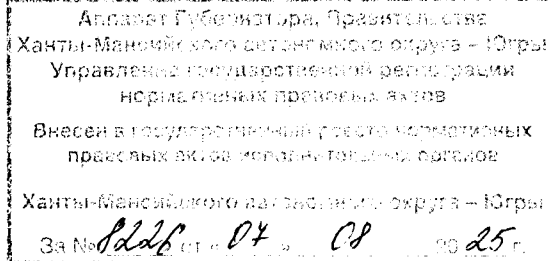 Аппарат Губернатора, Правительства
Ханты-Мансийского автономного округа – Югры
Управление государственной регистрации
нормативных правовых актов
Внесен в государственный реестр нормативных
правовых актов исполнительных органов
Ханты-Мансийского автономного округа – Югры
За № 8226 от « 07 » 08 20 25 г.